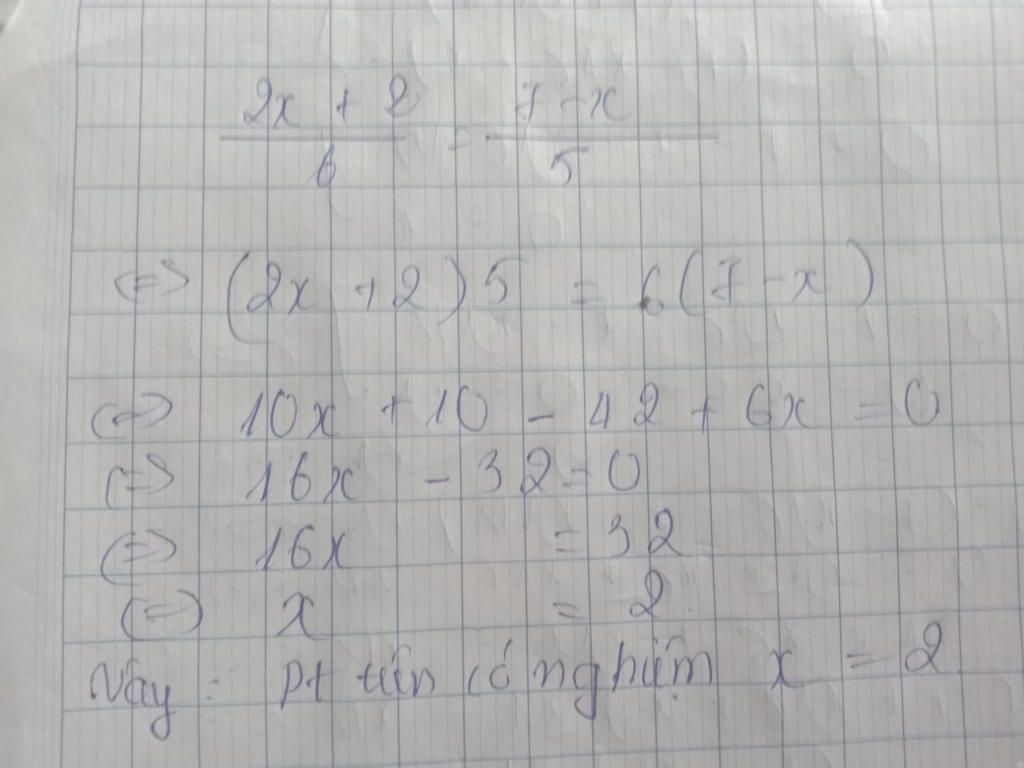 2x + 2 / 6 = 7 - x / 5
<=> (2x + 2)5 = 6(7 - x)
<=> 10x + 10 - 42 + 6x = 0
<=> 16x - 32 = 0
<=> 16x = 32
<=> x = 2
Vậy : pt trên có nghiệm x = 2